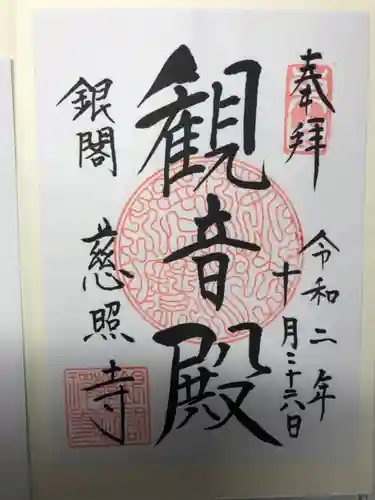 奉拝
令和二年
十月二十六日
観音殿
銀閣
慈照寺